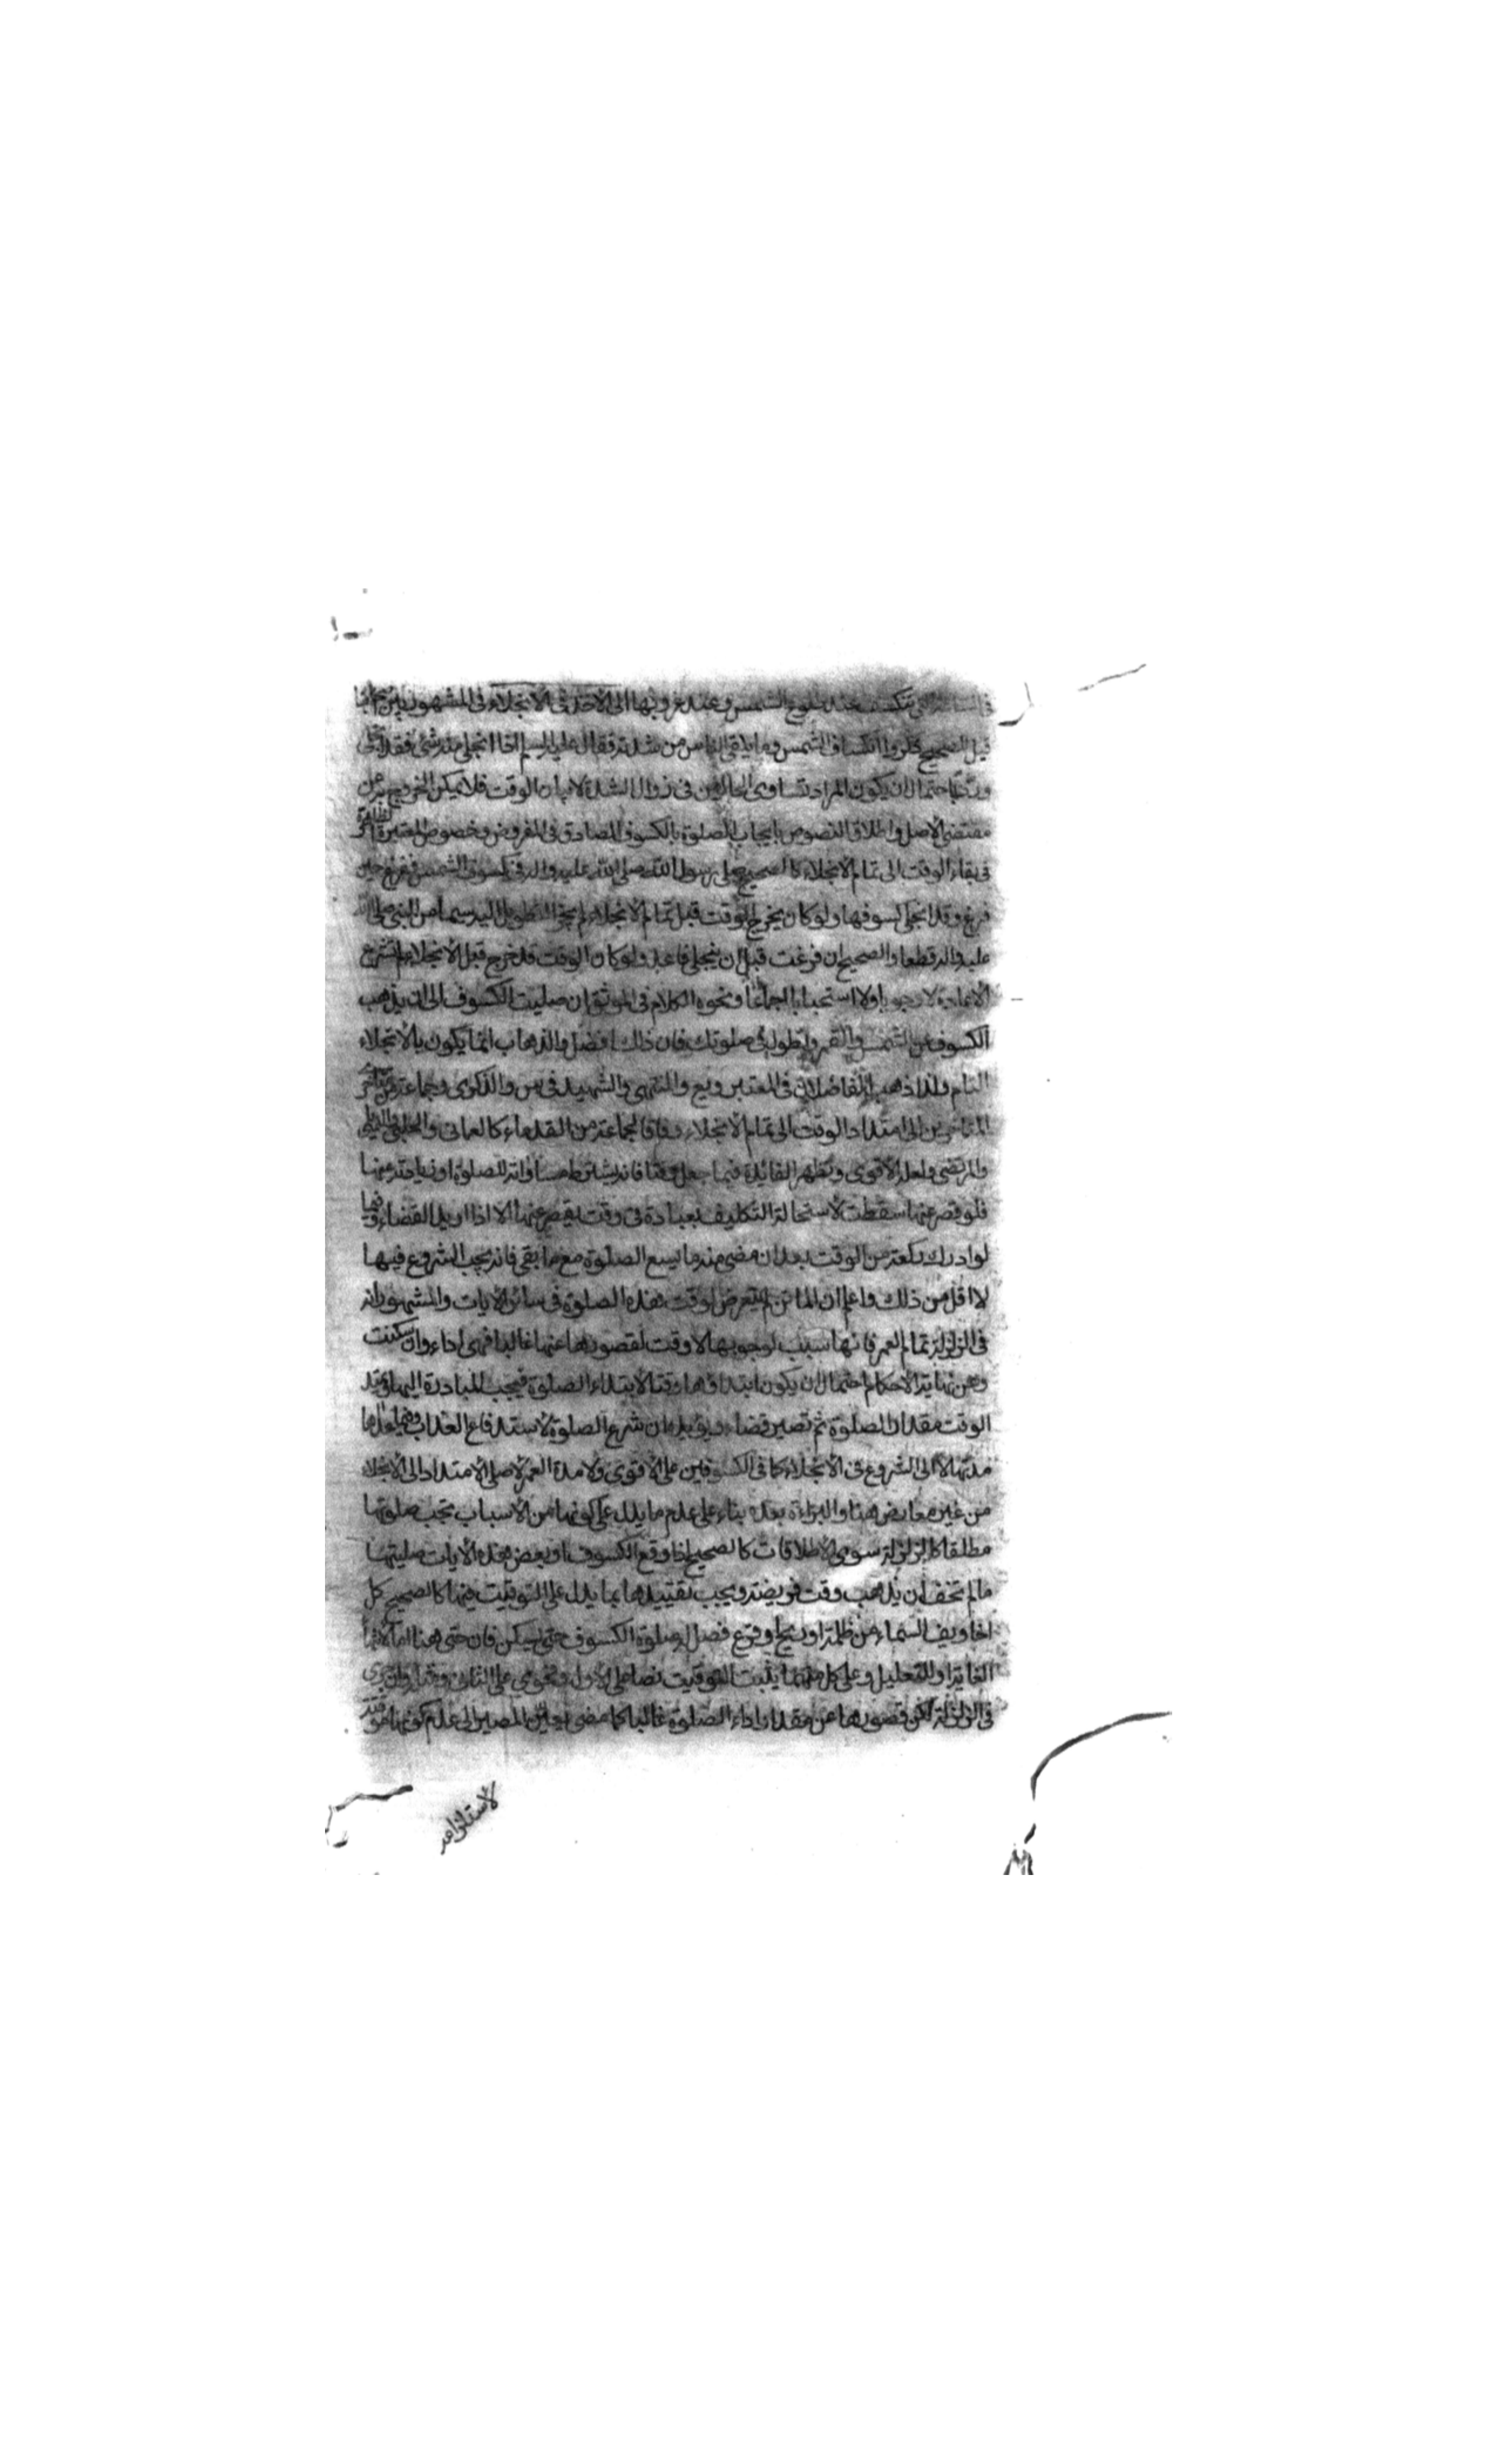 في الساعة التي تنكسف عند طلوع الشمس وعند غروبها الى الاخذ في الانجلاء في المشهور بين
قيل للصحيح ذكروا انكساف الشمس وما يلقى الناس من شدته فقال عليه السلم اذا انجلى منه شئ فقد انجلى
احتمال ان يكون المراد تساوى الحالين في زوال الشدة لا بيان الوقت فلا يمكن الخروج به من
مقتضى الاصل واطلاق النصوص بايجاب الصلوة بالكسوف الصادق في المفروض وخصوص المعتبرة الظاهرة
في بقاء الوقت الى تمام الانجلاء كالصحيح صلى رسول الله صلى الله عليه واله في كسوف الشمس ففرغ حين
فرغ وقد انجلى كسوفها ولو كان يخرج الوقت قبل تمام الانجلاء لم يجز التطويل اليه سيما من النبي صلى الله
عليه واله قطعا والصحيح ان فرغت قبل ان ينجلى فاعد ولو كان الوقت قد خرج قبل الانجلاء لم تشرع
الاعادة لا وجوبا ولا استحبابا اجماعا ونحوه الكلام في الموثق ان صليت الكسوف الى ان يذهب
الكسوف عن الشمس والقمر وتطول في صلوتك فان ذلك افضل والذهاب انما يكون بالانجلاء
التام ولذا ذهب الفاضلان في المعتبر ويع والمنتهى والشهيد في س والذكرى وجماعة من متاخري
المتاخرين الى امتداد الوقت الى تمام الانجلاء وفاقا لجماعة من القدماء كالعماني والحلبي والديلمي
والمرتضى ولعله الاقوى وتظهر الفائدة فيما جعل وقتا فانه يشترط مساواته للصلوة او زيادته عنها
فلو قصر عنها سقطت لاستحالة التكليف بعبادة في وقت يقصر عنها الا اذا اريد القضاء وفيما
لو ادرك ركعة من الوقت بعد ان مضى منه ما يسع الصلوة مع ما بقى فانه يجب الشروع فيها
لا اقل من ذلك واعلم ان الماتن لم يتعرض لوقت هذه الصلوة في سائر الايات والمشهور انه
في الزلزلة تمام العمر فانها سبب لوجوبها لا وقت لقصورها عنها غالبا فهى اداء وان سكنت
وعن نهاية الاحكام احتمال ان يكون ابتداؤها وقتا لابتداء الصلوة فيجب المبادرة اليها ويمتد
الوقت مقدار الصلوة ثم تصير قضاء ويؤيده ان شرع الصلوة لاستدفاع العذاب وفيما عداها
مدتها لا الى الشروع في الانجلاء كما في الكسوفين على الاقوى ولا مدة العمر لاصل الامتداد الى الانجلاء
من غير معارض هنا والبراءة بعده بناء على عدم ما يدل على كونها من الاسباب تجب صلوتها
مطلقا كالزلزلة سوى الاطلاقات كالصحيح اذا وقع الكسوف او بعض هذه الايات صليتها
ما لم تخف ان يذهب وقت فريضة ويجب تقييدها بما يدل على التوقيت فيها كالصحيح كل
اخاويف السماء من ظلمة او ريح او فزع فصل له صلوة الكسوف حتى يسكن فان حتى هنا اما لانتهاء
الغاية او للتعليل وعلى كل منهما يثبت التوقيت نصا على الاول وفحوى على الثاني وهذا وان جرى
في الزلزلة لكن قصورها عن مقدار اداء الصلوة غالبا كما مضى اوجب المصير الى عدم كونها موقتة
لاستلزامه